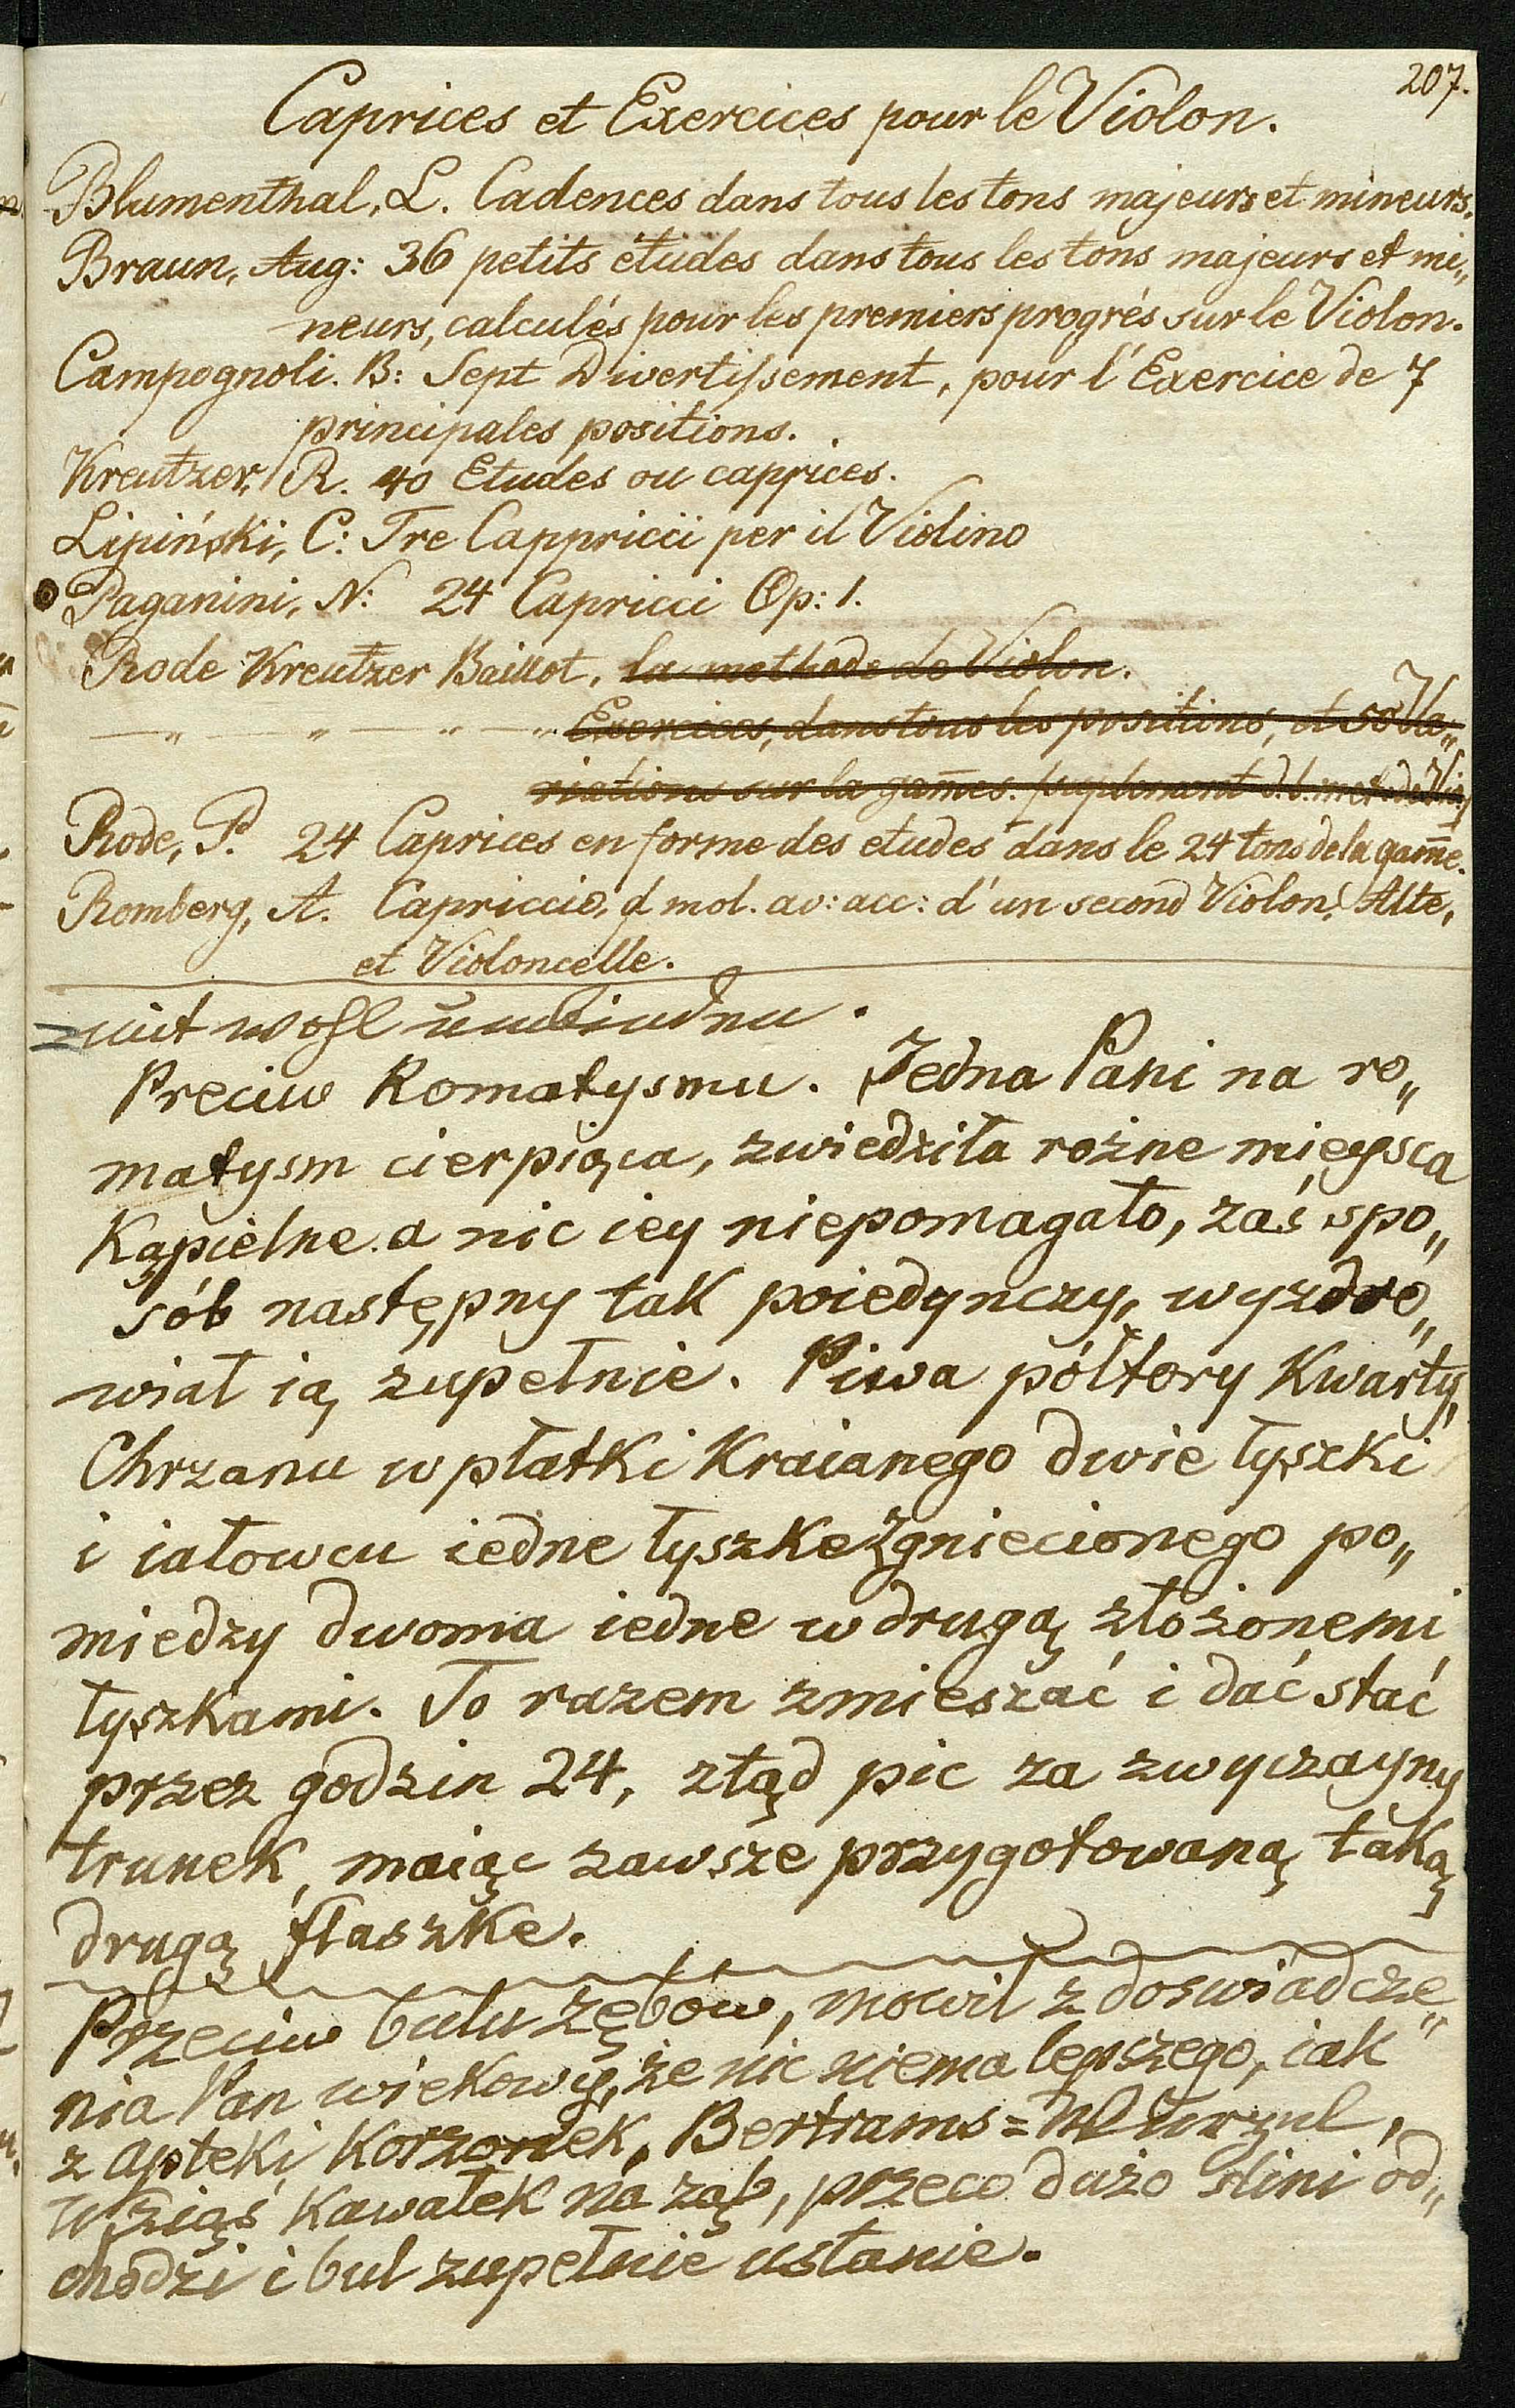 207.
Caprices et Exercices pour le Violon.
Blumenthal, L. Cadences dans tous les tons majeurs et mineurs.
Braun, Aug: 36 petits études dans tous les tons majeurs et mi„
neurs, calculés pour les premiers progrés sur le Violon.
Campognoli. B: Sept Divertissement, pour l'Exercice de 7
principales positions.
Kreutzer, R. 40 Etudes ou caprices.
Lipiński, C: Tre Cappricii per il Violino
Paganini, N: 24 Capricci Op: 1.
Rode Kreutzer Baillot, la methode de Violon.
— „ — „ — „ — „ Exercices, dans tous les positions, et 50 Va„
riations sur la gam̄es. suplement d. l. met. de Vio.
Rode, P. 24 Caprices en forme des etudes dans le 24 tons de la gam̄e.
Romberg, A. Capriccio, d mol. av: acc: d'un second Violon, Alte,
et Violoncelle.
mit wohl
Preciw Romatysmu. Jedna Pani na ro„
matysm cierpiąca, zwiedziła rożne mieysca
Kąpielne. a nic iey niepomagało, zaś spo„
sób następny tak poiedynczy, wyzdro„
wiał ią zupełnie. Piwa półtory Kwarty,
Chrzanu w płatki Kraianego dwie łyszki
i iałowcu iedne łyszke zgniecionego po„
miedzy dwoma iedne w drugą złożonemi
łyszkami. To razem zmieszać i dać stać
przez godzin 24, ztąd pic za zwyczayny
trunek, maiąc zawsze przygotowaną taką
drugą flaszke.
Przeciw bulu zębów, mowił z doswiadcze„
nia Pan wiekowy, że nic niema lepszego, iak
z apteki Korzonek, Bertrams=Wurzul,
Wziąś Kawałek na ząb, przeco dużo slini od„
chodzi i bul zupełnie ustanie.